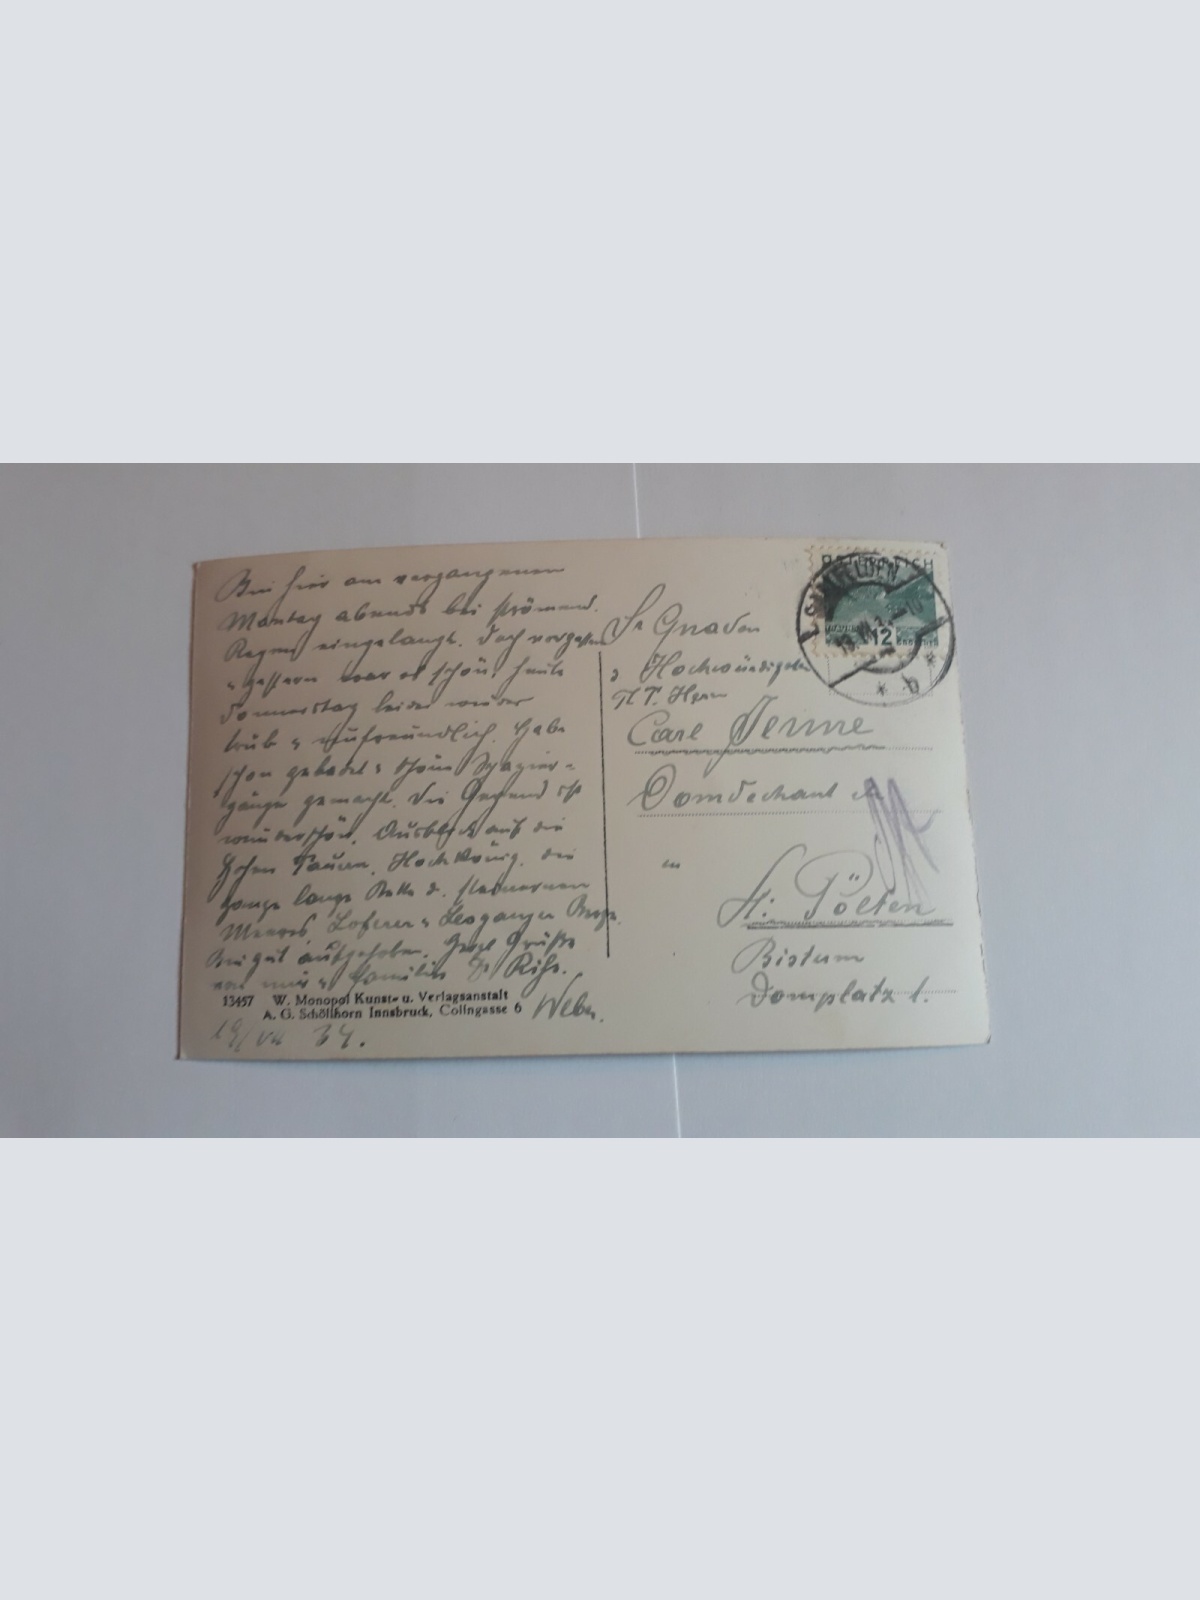 Bin hier am vergangenen
Montag abends bei strömend.
Regen eingelangt. Doch vorgestern
u. gestern war es schön, heute
Donnerstag leider wieder
trüb u. unfreundlich. Habe
schon gebadet u. schöne Spazier-
gänge gemacht. Die Gegend ist
wunderschön. Ausblick auf die
Hohen Tauern, Hochkönig, die
ganze lange Kette d. steinernen
Meeres, Loferer u. Leoganger Berge.
Bin gut aufgehoben. Herzl Grüße
von mir u. Familie Dr Rihs.
Weber.
13457 W. Monopol Kunst- u. Verlagsanstalt
A. G. Schöllhorn Innsbruck, Colingasse 6
19/VII 34.
ÖSTERREICH
12
GROSCHEN
b
Sr Gnaden
Hochwürdigsten
P. T. Herrn
Carl Jenne
Domdechant
in
St. Pölten
Bistum
Domplatz 1.